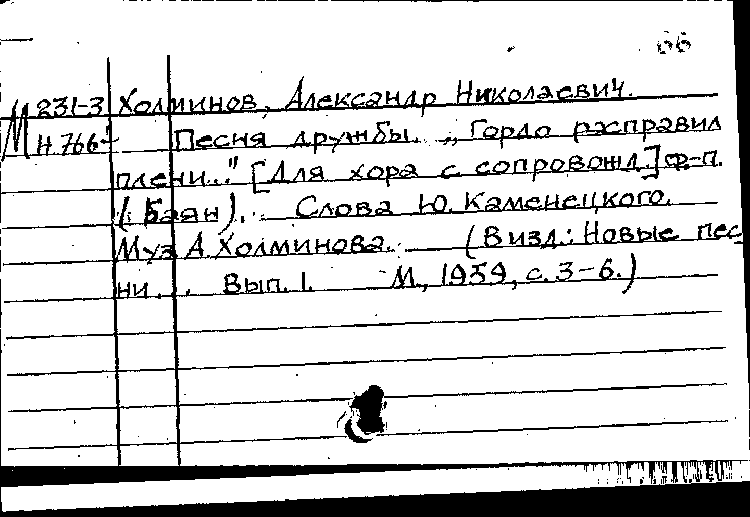 66
М 231-3 Холминов, Александр Николаевич.
Н 766 Песня дружбы. „Гордо расправил
плечи..." [Для хора с сопровожд.] ф-п.
(Баян). Слова Ю. Каменецкого.
Муз А. Холминова. (В изд.: Новые пес
ни... Вып. 1. М., 1959, с. 3-6.)